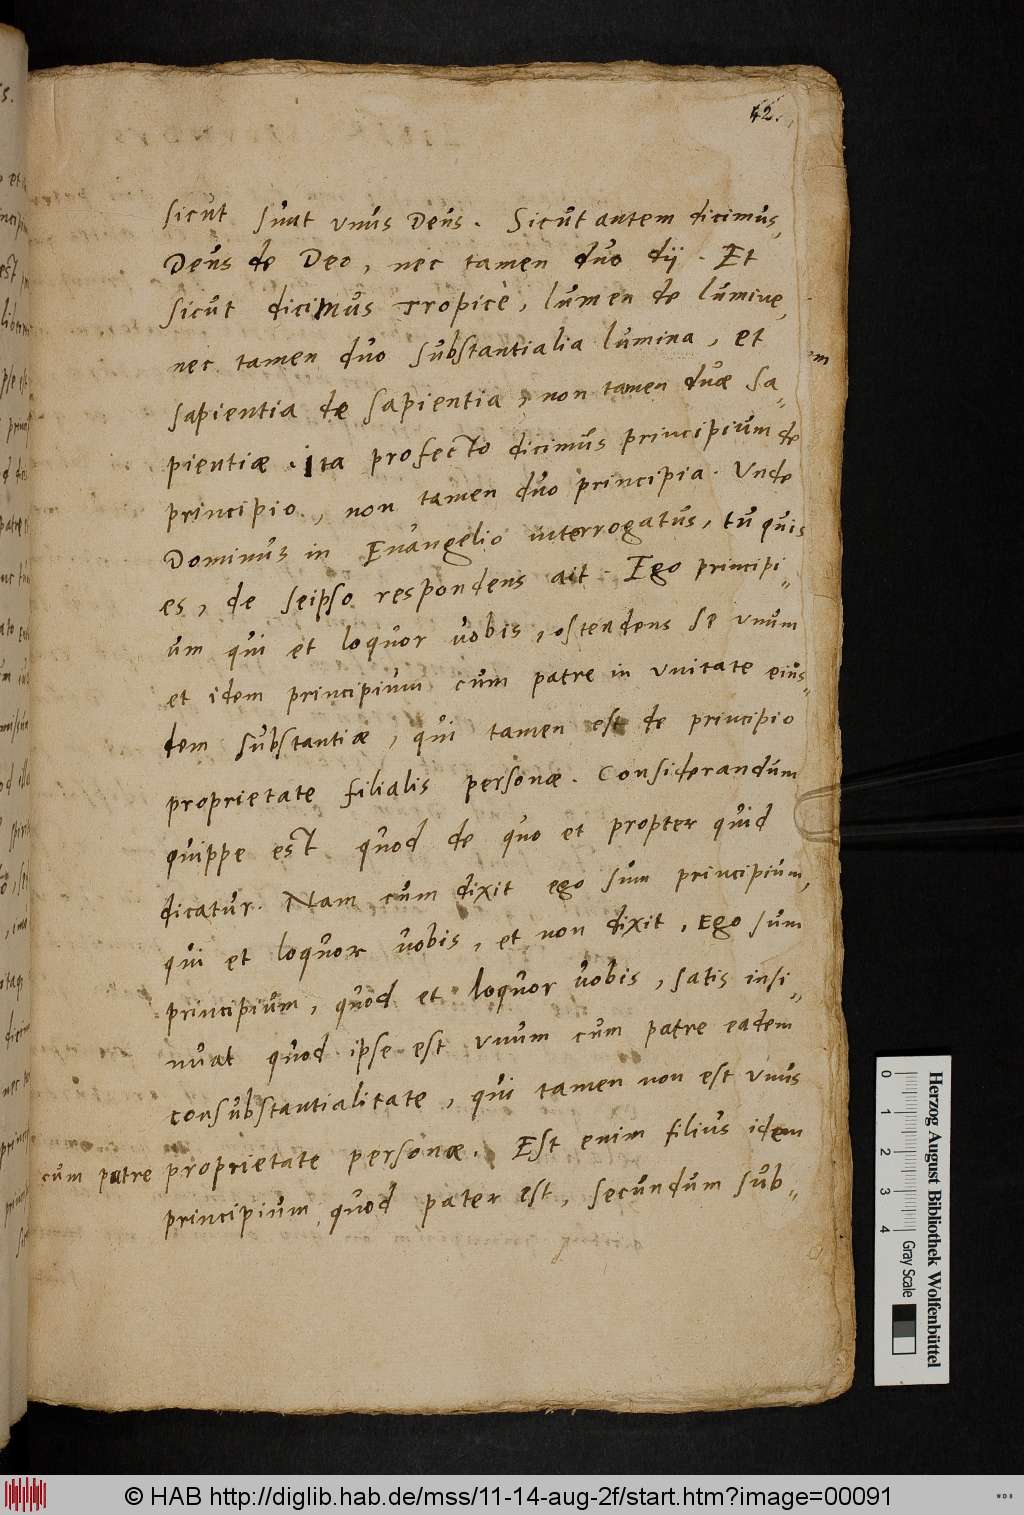 42.
sicut sunt vnus Deus. Sicut autem dicimus,
Deus de Deo, nec tamen duo dij. Et
sicut dicimus tropicè, lumen de lumine,
nec tamen duo substantialia lumina, et
sapientia de sapientia, non tamen duæ sa„
pientiæ. ita profecto dicimus principium de
principio, non tamen duo principia. Unde
Dominus in Euangelio interrogatus, tu quis
es, de seipso respondens ait. Ego principi„
um qui et loquor uobis, ostendens se vnum
et idem principium cum patre in vnitate eius„
dem substantiæ, qui tamen est de principio
proprietate filialis personæ. Considerandum
quippe est quod de quo et propter quid
dicatur. Nam cum dixit ego sum principium,
qui et loquor uobis, et non dixit, Ego sum
principium, quod et loquor uobis, satis insi„
nuat quod ipse est vnum cum patre eadem
consubstantialitate, qui tamen non est vnus
cum patre proprietate personæ. Est enim filius idem
principium quod pater est, secundum sub„
Herzog August Bibliothek Wolfenbüttel
0 1 2 3 4 Gray Scale
© HAB http://diglib.hab.de/mss/11-14-aug-2f/start.htm?image=00091